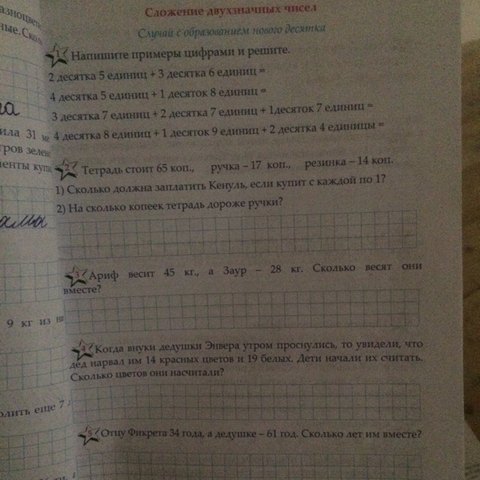 Сложение двухзначных чисел
Случай с образованием нового десятка
1 Напишите примеры цифрами и решите.
2 десятка 5 единиц + 3 десятка 6 единиц =
4 десятка 5 единиц + 1 десяток 8 единиц =
3 десятка 7 единиц + 2 десятка 7 единиц + 1десяток 7 единиц =
4 десятка 8 единиц + 1 десяток 9 единиц + 2 десятка 4 единицы =
Тетрадь стоит 65 коп., ручка – 17 коп., резинка – 14 коп.
1) Сколько должна заплатить Кенуль, если купит с каждой по 1?
2) На сколько копеек тетрадь дороже ручки?
3 Ариф весит 45 кг., а Заур – 28 кг. Сколько весят они
вместе?
4 Когда внуки дедушки Энвера утром проснулись, то увидели, что
дед нарвал им 14 красных цветов и 19 белых. Дети начали их считать.
Сколько цветов они насчитали?
5 Отцу Фикрета 34 года, а дедушке – 61 год. Сколько лет им вместе?
ила 31
9 кг из
еще 7